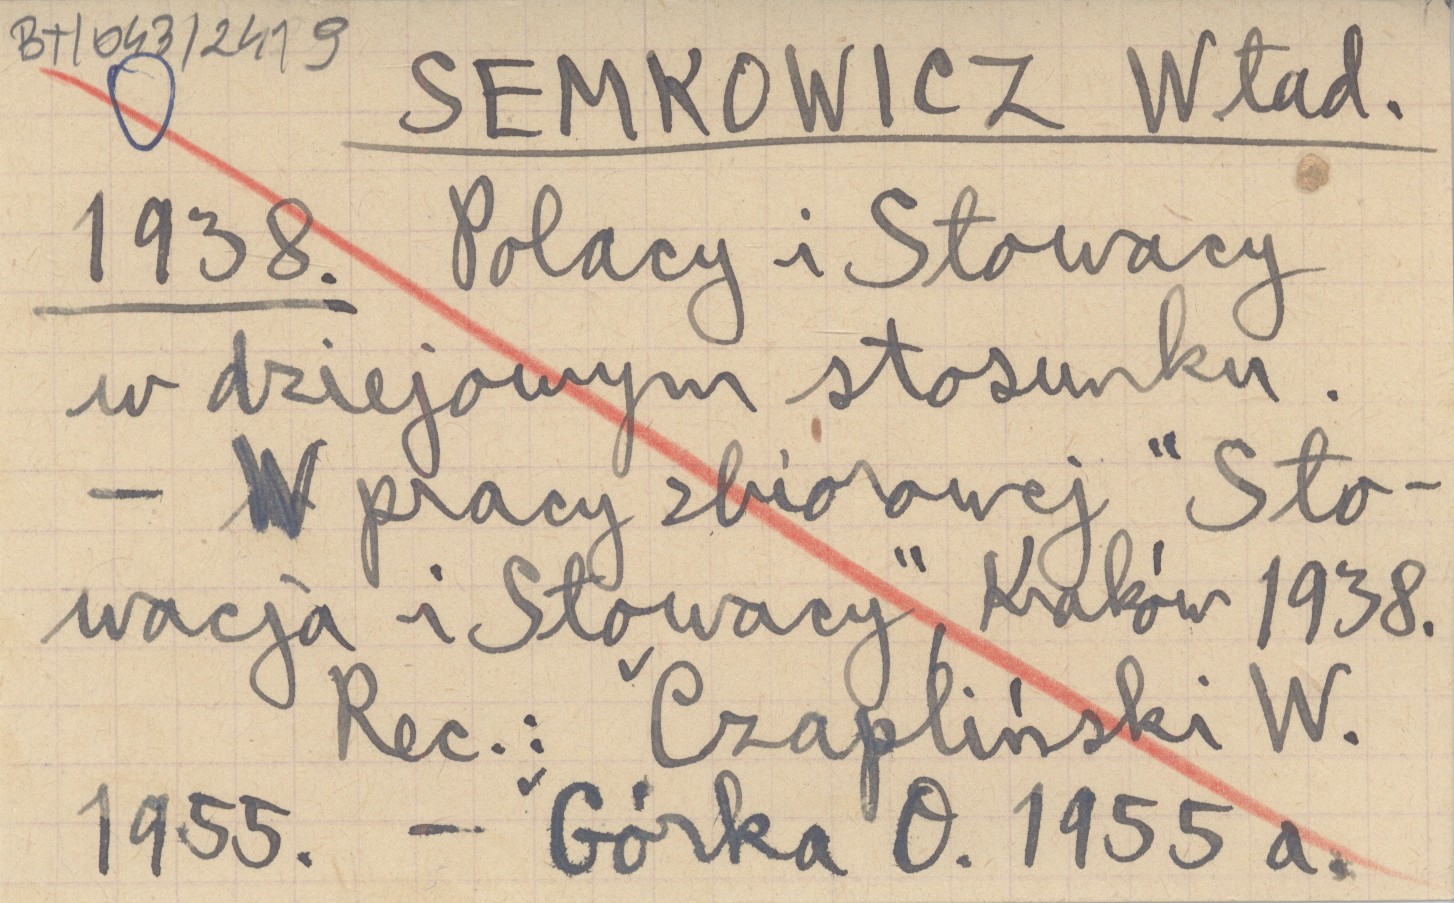 B+/043/2419
SEMKOWICZ Wład.
1938. Polacy i Słowacy
w dziejowym stosunku.
- W pracy zbiorowej "Sło-
wacja i Słowacy" Kraków 1938.
Rec.: Czapliński W.
1955. - Górka O. 1955 a.